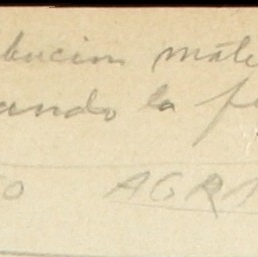 bucion mate
ando la
O AGRA